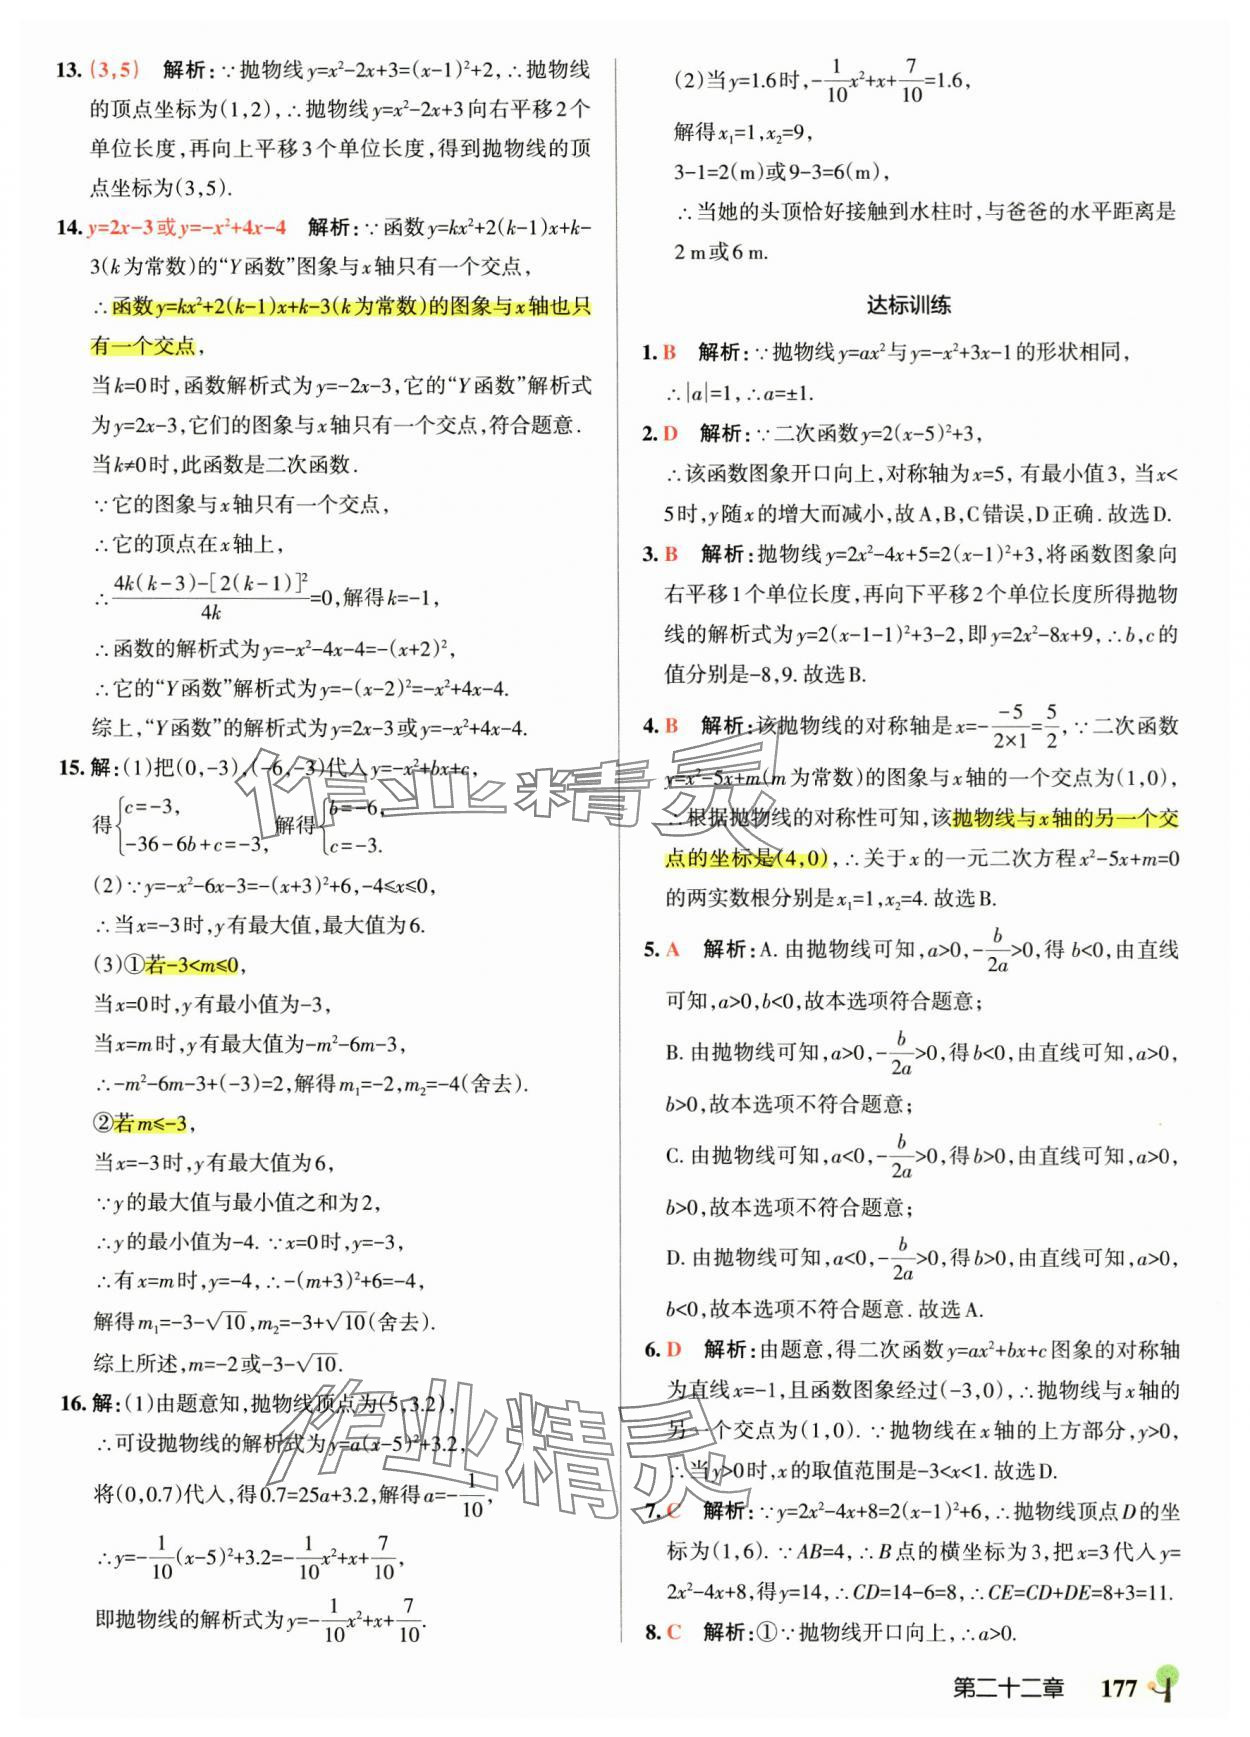 13. (3,5) 解析:∵抛物线y=x²-2x+3=(x-1)²+2,∴抛物线
的顶点坐标为(1,2),∴抛物线y=x²-2x+3向右平移2个
单位长度,再向上平移3个单位长度,得到抛物线的顶
点坐标为(3,5).
14. y=2x-3或y=-x²+4x-4 解析:∵函数y=kx²+2(k-1)x+k-
3(k为常数)的“Y函数”图象与x轴只有一个交点,
∴函数y=kx²+2(k-1)x+k-3(k为常数)的图象与x轴也只
有一个交点,
当k=0时,函数解析式为y=-2x-3,它的“Y函数”解析式
为y=2x-3,它们的图象与x轴只有一个交点,符合题意.
当k≠0时,此函数是二次函数.
∵它的图象与x轴只有一个交点,
∴它的顶点在x轴上,
∴\frac{4k(k-3)-[2(k-1)]²}{4k}=0,解得k=-1,
∴函数的解析式为y=-x²-4x-4=-(x+2)²,
∴它的“Y函数”解析式为y=-(x-2)²=-x²+4x-4.
综上,“Y函数”的解析式为y=2x-3或y=-x²+4x-4.
15. 解:(1)把(0,-3),(-6,-3)代入y=-x²+bx+c,
得{c=-3, -36-6b+c=-3, 解得{b=-6, c=-3.
(2)∵y=-x²-6x-3=-(x+3)²+6,-4≤x≤0,
∴当x=-3时,y有最大值,最大值为6.
(3)①若-3<m≤0,
当x=0时,y有最小值为-3,
当x=m时,y有最大值为-m²-6m-3,
∴-m²-6m-3+(-3)=2,解得m₁=-2,m₂=-4(舍去).
②若m≤-3,
当x=-3时,y有最大值为6,
∵y的最大值与最小值之和为2,
∴y的最小值为-4. ∵x=0时,y=-3,
∴有x=m时,y=-4,∴-(m+3)²+6=-4,
解得m₁=-3-√10,m₂=-3+√10(舍去).
综上所述,m=-2或-3-√10.
16. 解:(1)由题意知,抛物线顶点为(5,3.2),
∴可设抛物线的解析式为y=a(x-5)²+3.2,
将(0,0.7)代入,得0.7=25a+3.2,解得a=-\frac{1}{10},
∴y=-\frac{1}{10}(x-5)²+3.2=-\frac{1}{10}x²+x+\frac{7}{10},
即抛物线的解析式为y=-\frac{1}{10}x²+x+\frac{7}{10}.
(2)当y=1.6时,-\frac{1}{10}x²+x+\frac{7}{10}=1.6,
解得x₁=1,x₂=9,
3-1=2(m)或9-3=6(m),
∴当她的头顶恰好接触到水柱时,与爸爸的水平距离是
2 m或6 m.
达标训练
1. B 解析:∵抛物线y=ax²与y=-x²+3x-1的形状相同,
∴|a|=1,∴a=±1.
2. D 解析:∵二次函数y=2(x-5)²+3,
∴该函数图象开口向上,对称轴为x=5,有最小值3,当x<
5时,y随x的增大而减小,故A,B,C错误,D正确.故选D.
3. B 解析:抛物线y=2x²-4x+5=2(x-1)²+3,将函数图象向
右平移1个单位长度,再向下平移2个单位长度所得抛物
线的解析式为y=2(x-1-1)²+3-2,即y=2x²-8x+9,∴b,c的
值分别是-8,9.故选B.
4. B 解析:该抛物线的对称轴是x=-\frac{-5}{2×1}=\frac{5}{2},∵二次函数
y=x²-5x+m(m为常数)的图象与x轴的一个交点为(1,0),
∴根据抛物线的对称性可知,该抛物线与x轴的另一个交
点的坐标是(4,0),∴关于x的一元二次方程x²-5x+m=0
的两实数根分别是x₁=1,x₂=4.故选B.
5. A 解析:A.由抛物线可知,a>0,-\frac{b}{2a}>0,得b<0,由直线
可知,a>0,b<0,故本选项符合题意;
B.由抛物线可知,a>0,-\frac{b}{2a}>0,得b<0,由直线可知,a>0,
b>0,故本选项不符合题意;
C.由抛物线可知,a<0,-\frac{b}{2a}>0,得b>0,由直线可知,a>0,
b>0,故本选项不符合题意;
D.由抛物线可知,a<0,-\frac{b}{2a}>0,得b>0,由直线可知,a>0,
b<0,故本选项不符合题意.故选A.
6. D 解析:由题意,得二次函数y=ax²+bx+c图象的对称轴
为直线x=-1,且函数图象经过(-3,0),∴抛物线与x轴的
另一个交点为(1,0). ∵抛物线在x轴的上方部分,y>0,
∴当y>0时,x的取值范围是-3<x<1.故选D.
7. C 解析:∵y=2x²-4x+8=2(x-1)²+6,∴抛物线顶点D的坐
标为(1,6). ∵AB=4,∴B点的横坐标为3,把x=3代入y=
2x²-4x+8,得y=14,∴CD=14-6=8,∴CE=CD+DE=8+3=11.
8. C 解析:①∵抛物线开口向上,∴a>0.
第二十二章 177
作业精灵
作业精灵